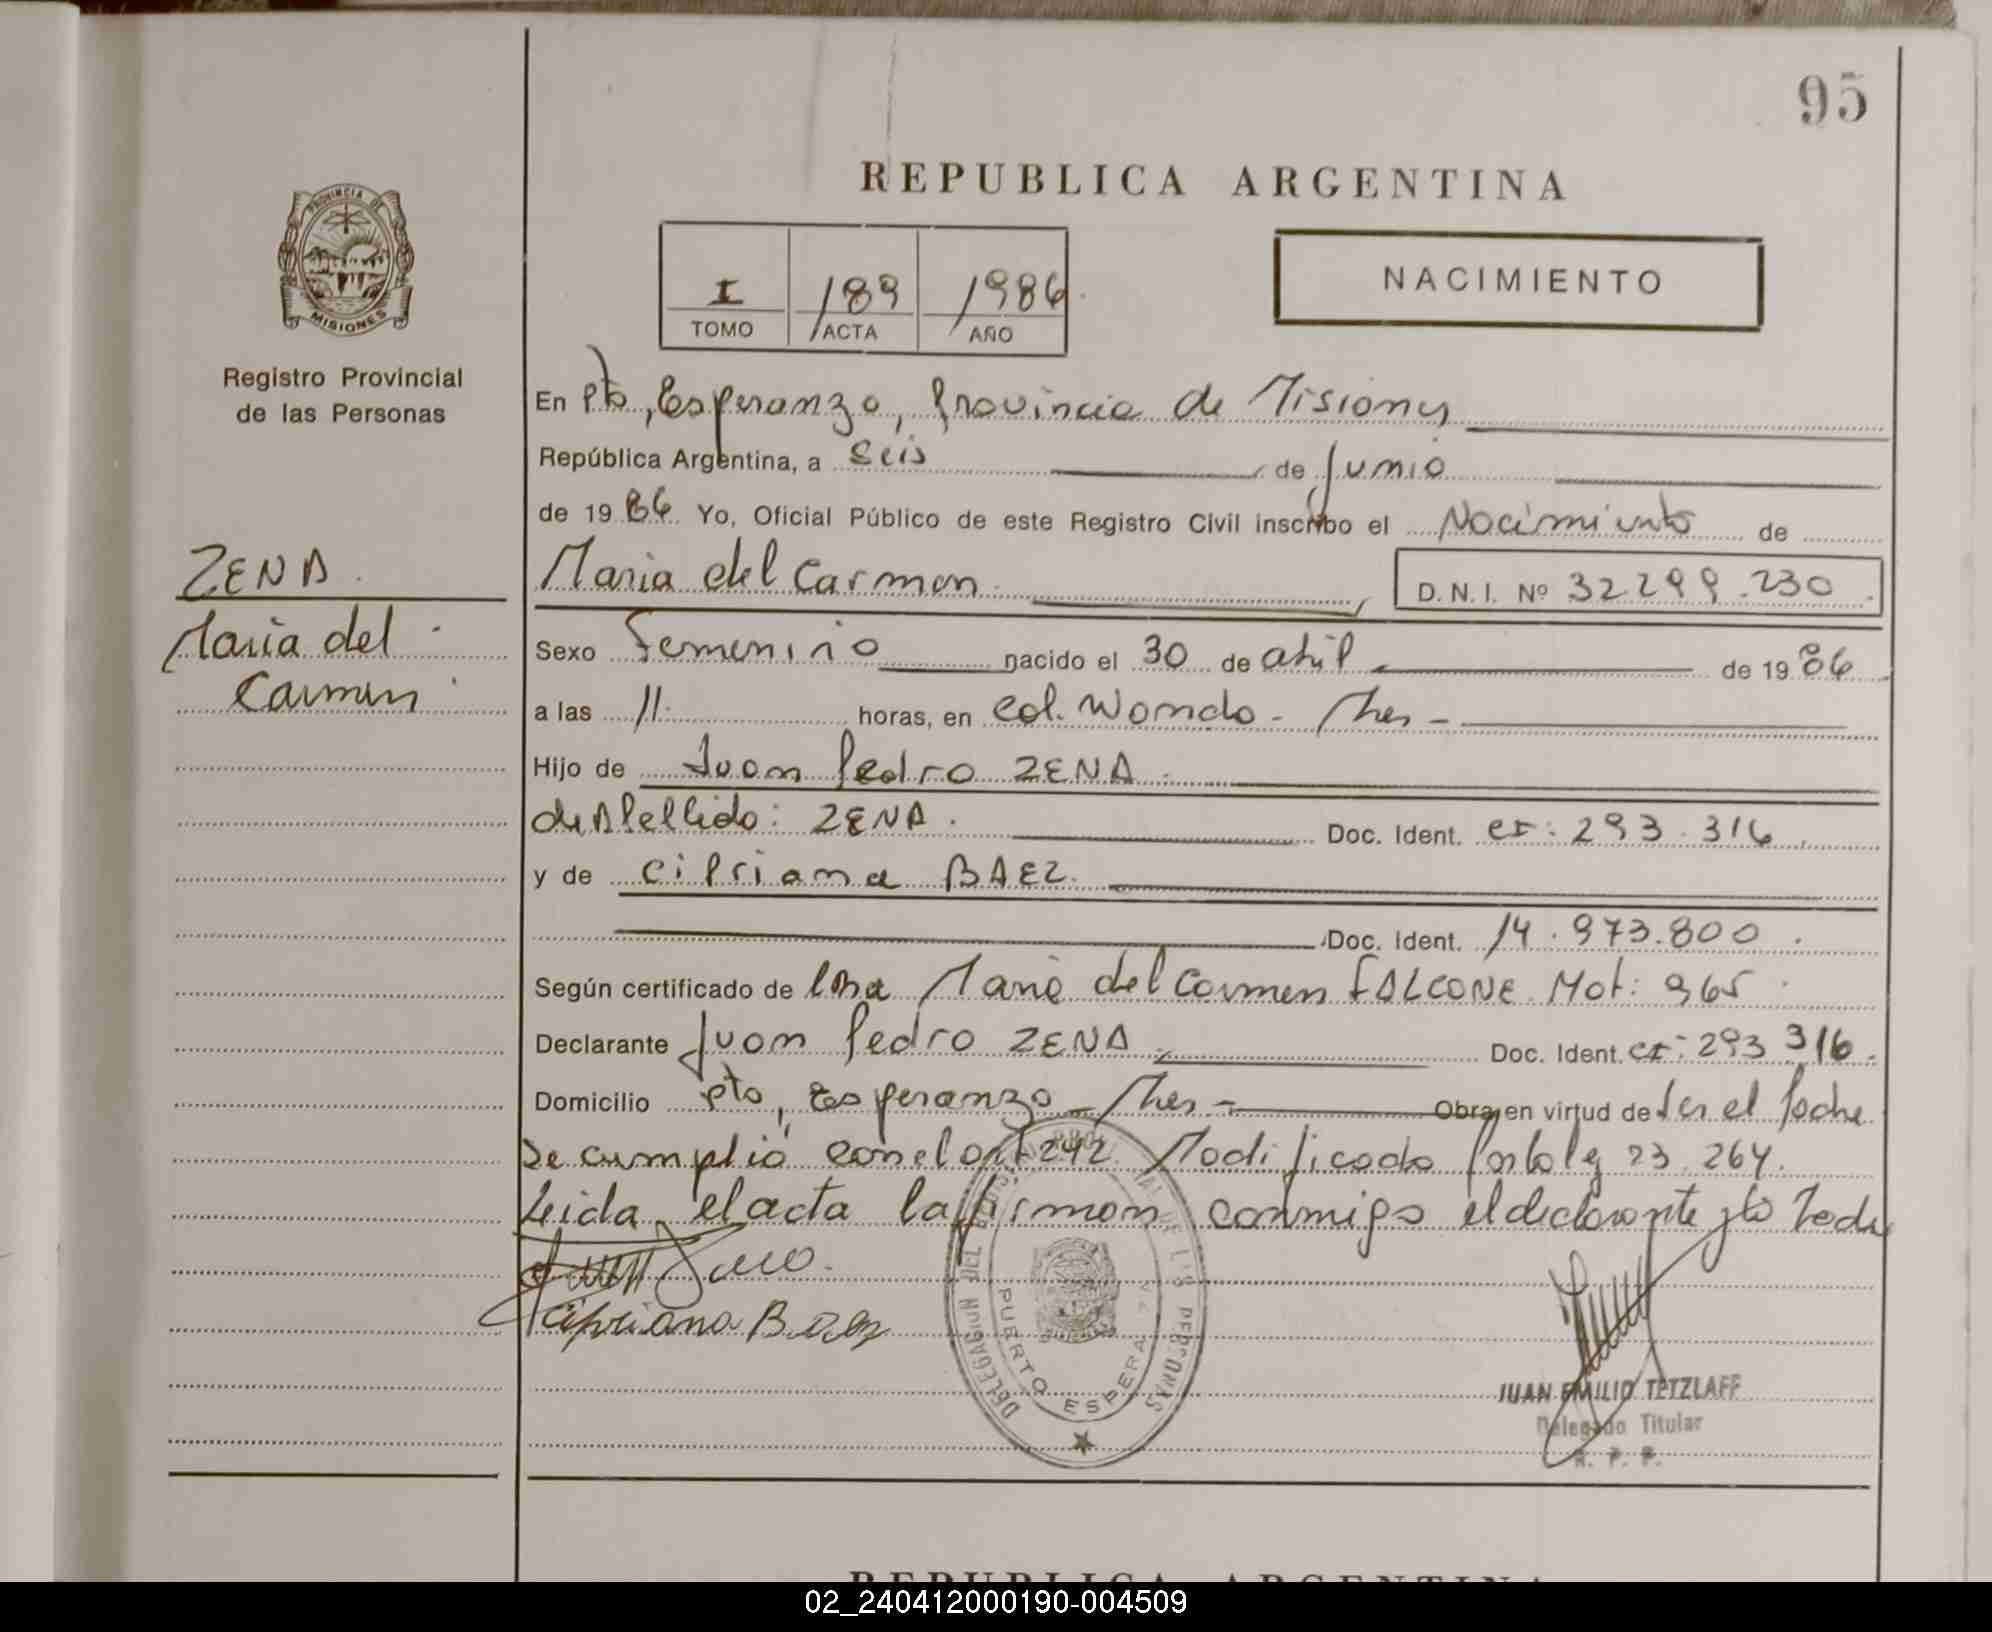 95
REPUBLICA ARGENTINA
I 189 1986
TOMO ACTA AÑO
NACIMIENTO
PROVINCIA DE
MISIONES
Registro Provincial
de las Personas
ZENA
Maria del
Carmen
En Pto, Esperanza, Provincia de Misiones
República Argentina, a seis de Junio
de 1986 Yo, Oficial Público de este Registro Civil inscribo el Nacimiento de
Maria del Carmen. D. N. I. Nº 32.299.230.
Sexo Femenino nacido el 30 de abril de 1986
a las 11. horas, en Col. Wanda - Mnes -
Hijo de Juan Pedro ZENA.
de Apellido: ZENA. Doc. Ident. CI: 293.316
y de Cipriana BAEZ.
Doc. Ident. 14.973.800.
Según certificado de Maria del Carmen FALCONE Mat: 965
Declarante Juan Pedro ZENA Doc. Ident. CI: 293 316.
Domicilio Pto, Esperanza - Mnes - Obra en virtud de Ser el Padre
Se cumplió con el art 242 Modificado por la ley 23.264.
Leida el acta la firman conmigo el declarante y la Madre
Cipriana Baez
DELEGACION DEL REGISTRO PROVINCIAL DE LAS PERSONAS
PUERTO ESPERANZA
JUAN EMILIO TETZLAFF
Delegado Titular
R. P. P.
REPUBLICA ARGENTINA
02_240412000190-004509